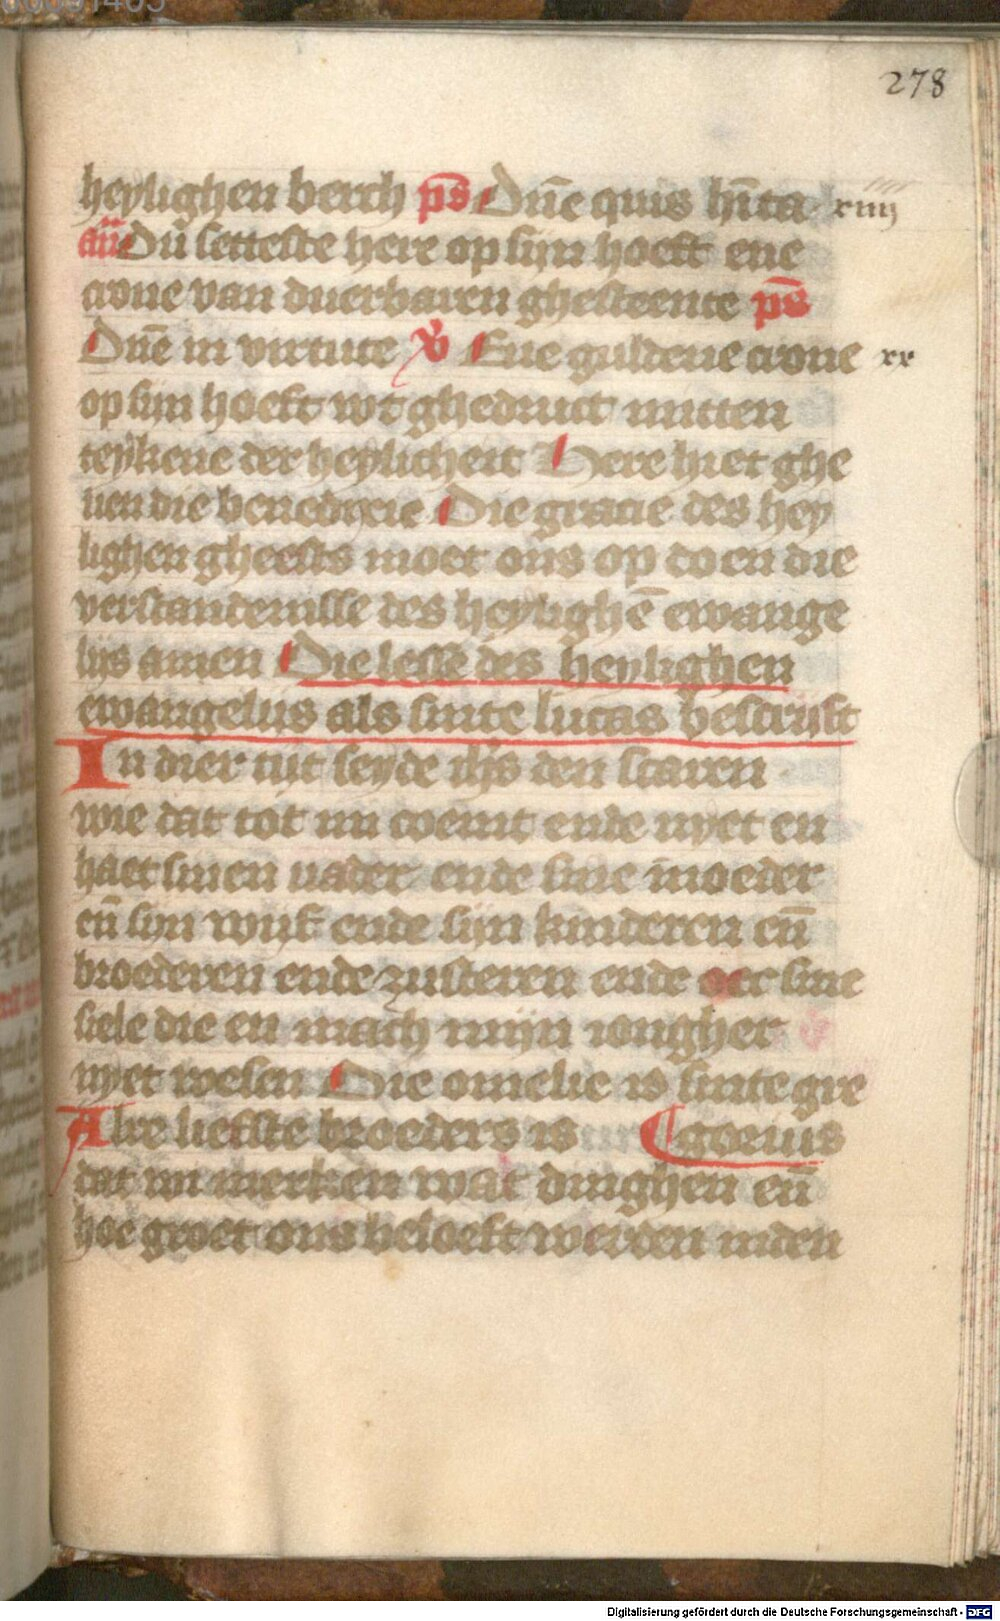 278
heylighen berch ps̄ Dn̄e quis hīta xiiij
an̄ Du setteste here op sijn hoeft ene
crone van duerbaren ghesteente ps̄
Dn̄e in virtute v̾ Ene guldene crone xx
op sijn hoeft wt ghedruct mitten
teykene der heylicheit Here hiet ghe
uen die benedixie Die gracie des hey
lighen gheests moet ons op doen die
verstandenisse des heylighē ewange
lijs amen Die lesse des heylighen
ewangelijs als sinte lucas bescrijft
In dier tijt seyde ihs den scaren
wie dat tot mi coemt ende nyet en
haet sinen uader ende sine moeder
en̄ sijn wijf ende sijn kinderen en̄
broederen ende zusteren ende oec sine
siele die en mach mijn iongher
nyet wesen Die omelie is sinte gre
Alre liefste broeders is gorius
dat wi merken wat dinghen en̄
hoe groet ons beloeft werden inden
Digitalisierung gefördert durch die Deutsche Forschungsgemeinschaft - DFG